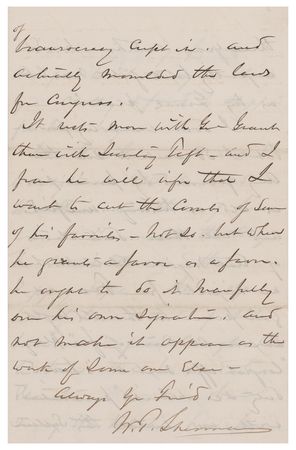 of
bureaucracy crept in. and
actually moulded the laws
for Congress.
It rests more with Gen Grant
than with Secretary Taft - and I
fear he will infer that I
want to cut the Combs of Some
of his favorites - not so. but when
he grants a favor as a favor.
he ought to do it manfully
over his own Signature. and
not make it appear as the
work of Some one Else -
Always Yr Friend
W. T. Sherman